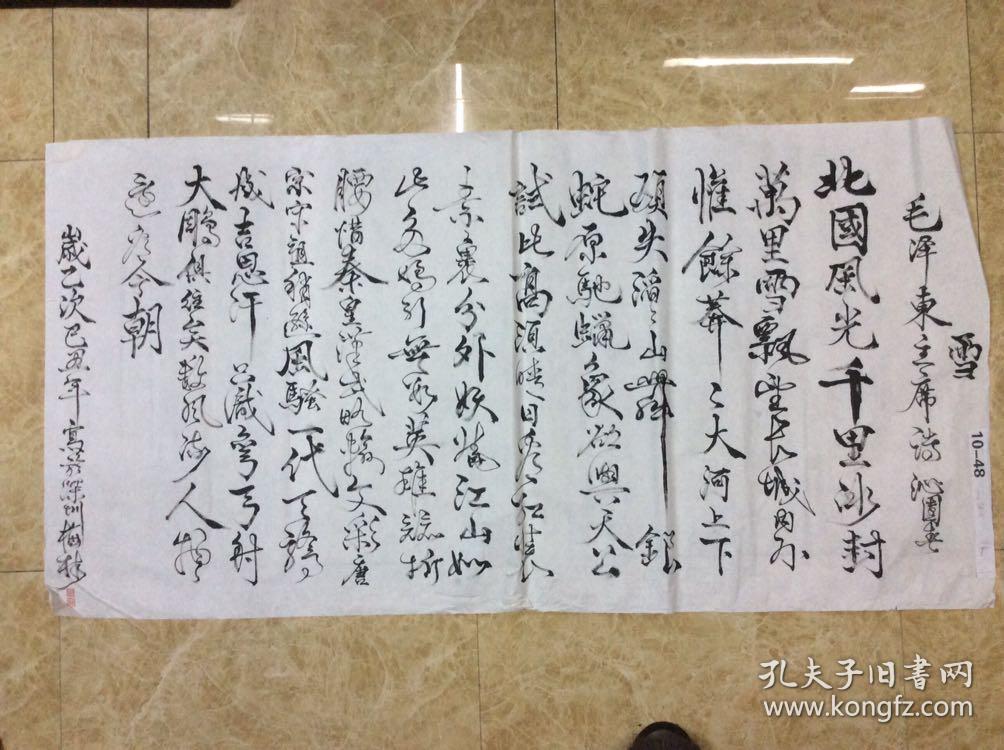 雪
毛泽東主席诗 沁園春
北國風光千里冰封
萬里雪飄望長城内外
惟餘莽〻大河上下
頓失滔〻山舞 銀
蛇原馳蠟象欲與天公
試比高須晴日看红装
素裹分外妖嬈江山如
此多嬌引無数英雄競折
腰惜秦皇漢武略輸文彩唐
宗宋祖稍遜風騷一代天驕
成吉思汗只識彎弓射
大鵰俱往矣数風流人物
還看今朝
歲乙次己丑年 寫於深圳
10-48
孔夫子旧書网
www.kongfz.com